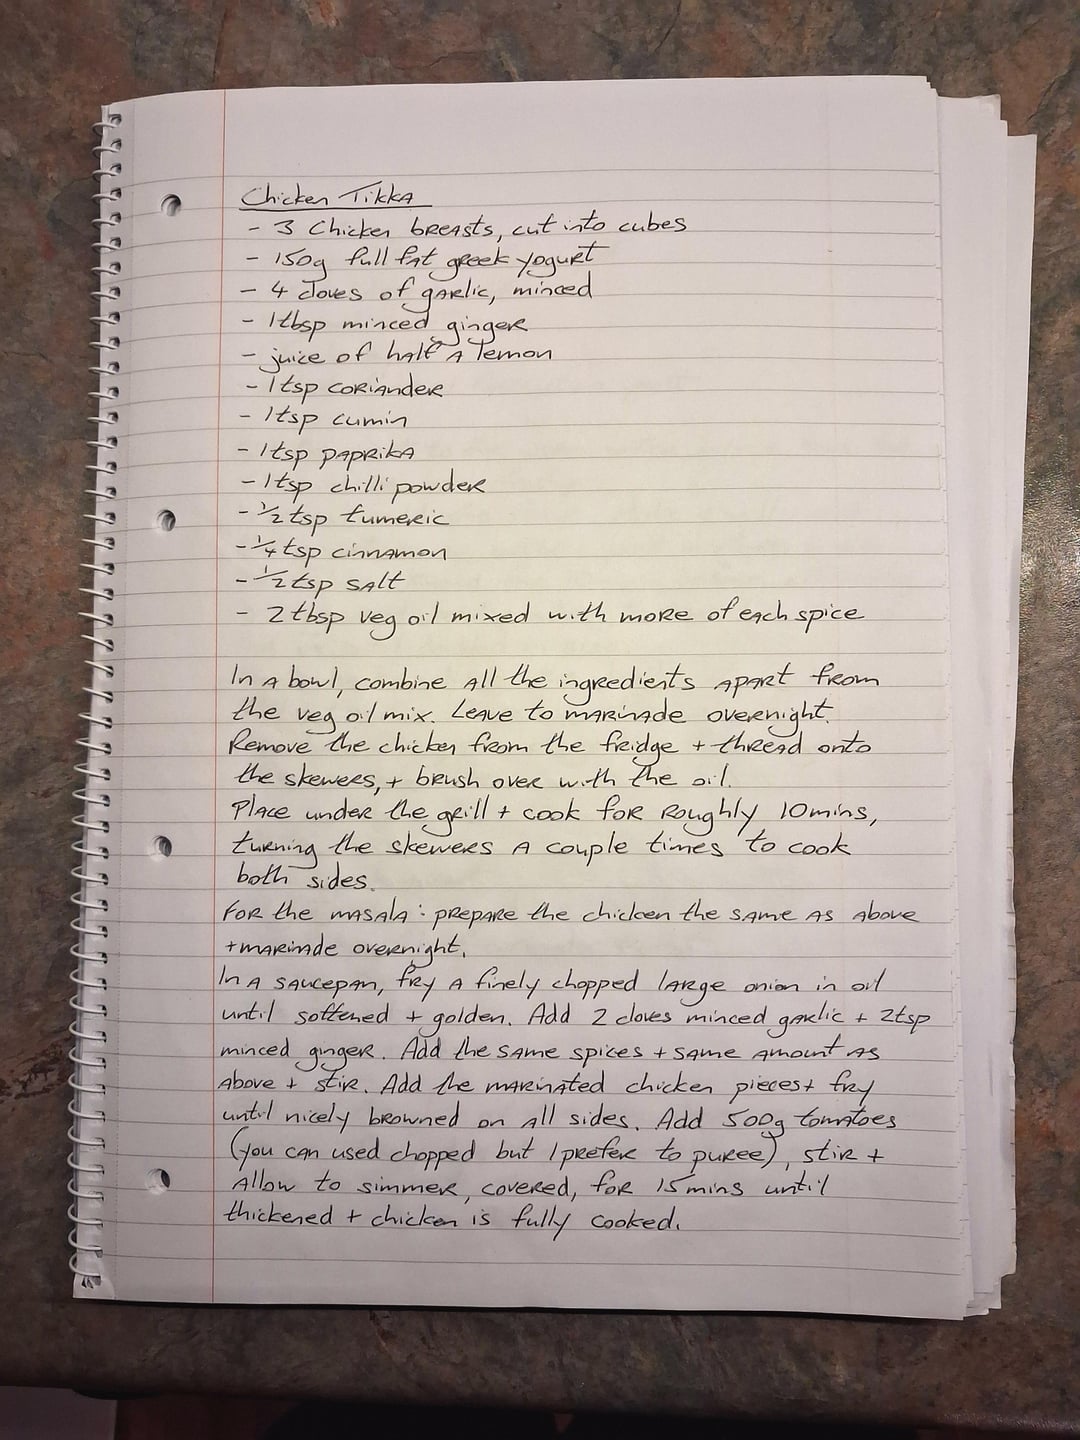 Chicken Tikka
- 3 Chicken breasts, cut into cubes
- 150g full fat greek yogurt
- 4 cloves of garlic, minced
- 1tbsp minced ginger
- juice of half a lemon
- 1tsp coriander
- 1tsp cumin
- 1tsp paprika
- 1tsp chilli powder
- 1/2tsp tumeric
- 1/4tsp cinnamon
- 1/2tsp salt
- 2tbsp veg oil mixed with more of each spice
In a bowl, combine all the ingredients apart from
the veg oil mix. Leave to marinade overnight.
Remove the chicken from the fridge + thread onto
the skewers, + brush over with the oil.
Place under the grill + cook for roughly 10mins,
turning the skewers a couple times to cook
both sides.
For the masala: prepare the chicken the same as above
+marinade overnight.
In a saucepan, fry a finely chopped large onion in oil
until softened + golden. Add 2 cloves minced garlic + 2tsp
minced ginger. Add the same spices + same amount as
above + stir. Add the marinated chicken pieces + fry
until nicely browned on all sides. Add 500g tomatoes
(you can used chopped but I prefer to puree), stir +
allow to simmer, covered, for 15mins until
thickened + chicken is fully cooked.